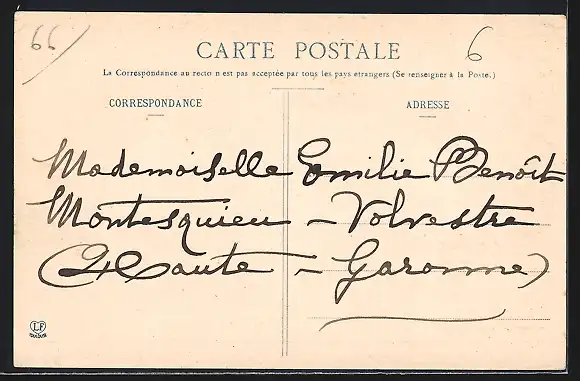 66
6
CARTE POSTALE
La Correspondance au recto n'est pas acceptée par tous les pays etrangers (Se renseigner à la Poste.)
CORRESPONDANCE
ADRESSE
Mademoiselle Emilie Benoît
Montesquieu - Volvestre
(Haute - Garonne)
LF